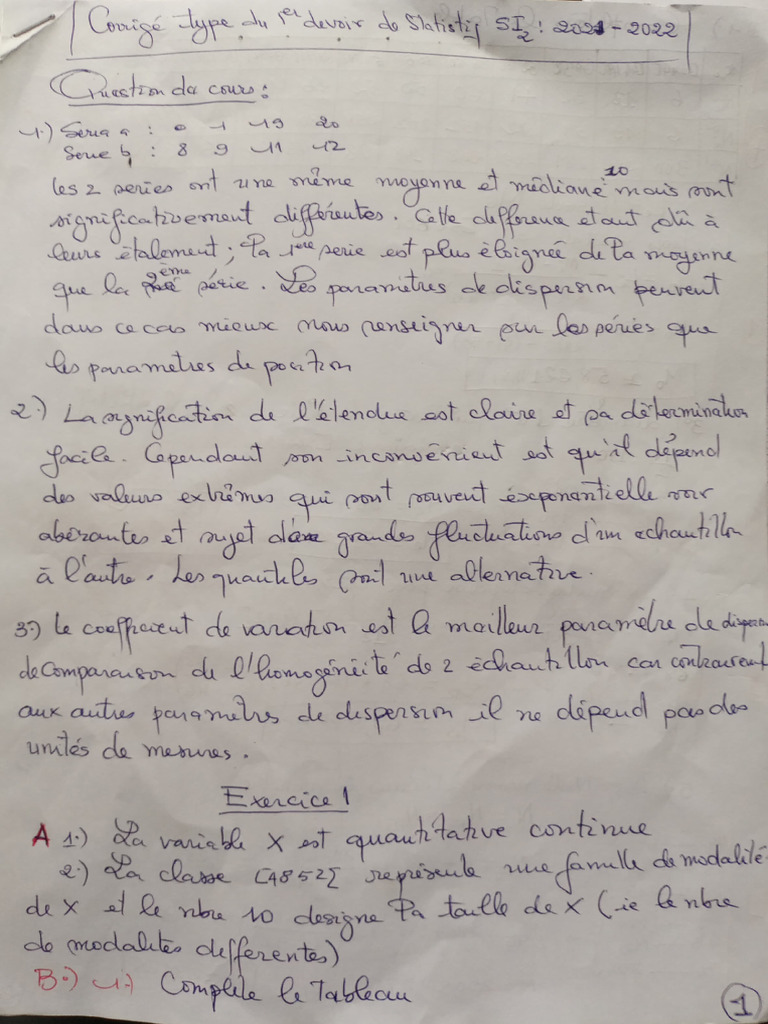 Corrigé type du 1er devoir de Statistiq SI2 : 2021-2022
Question du cours :
1.) Serie a : 0 1 19 20
Serie b : 8 9 11 12
les 2 series ont une même moyenne et médiane 10 mais sont
significativement différentes. Cette difference etant dû à
leurs étalement ; la 1ere serie est plus éloignée de la moyenne
que la 2ème série. Les paramètres de dispersion peuvent
dans ce cas mieux nous renseigner sur les séries que
les parametres de position
2.) La signification de l'étendue est claire et sa détermination
facile. Cependant son inconvénient est qu'il dépend
des valeurs extrêmes qui sont souvent exeponentielle voir
abérantes et sujet de grandes fluctuations d'un echantillon
à l'autre. Les quantiles sont une alternative.
3.) Le coefficient de variation est le meilleur paramètre de dispersion
de comparaison de l'homogénéité de 2 échantillon car contrairement
aux autres parametres de dispersion il ne dépend pas des
unités de mesures.
Exercice 1
A 1.) La variable X est quantitative continue
2.) La classe [48 52[ représente une famille de modalité
de X et le nbre 10 designe la taille de X (ie le nbre
de modalités differentes)
B.) 1.) Complète le Tableau
1